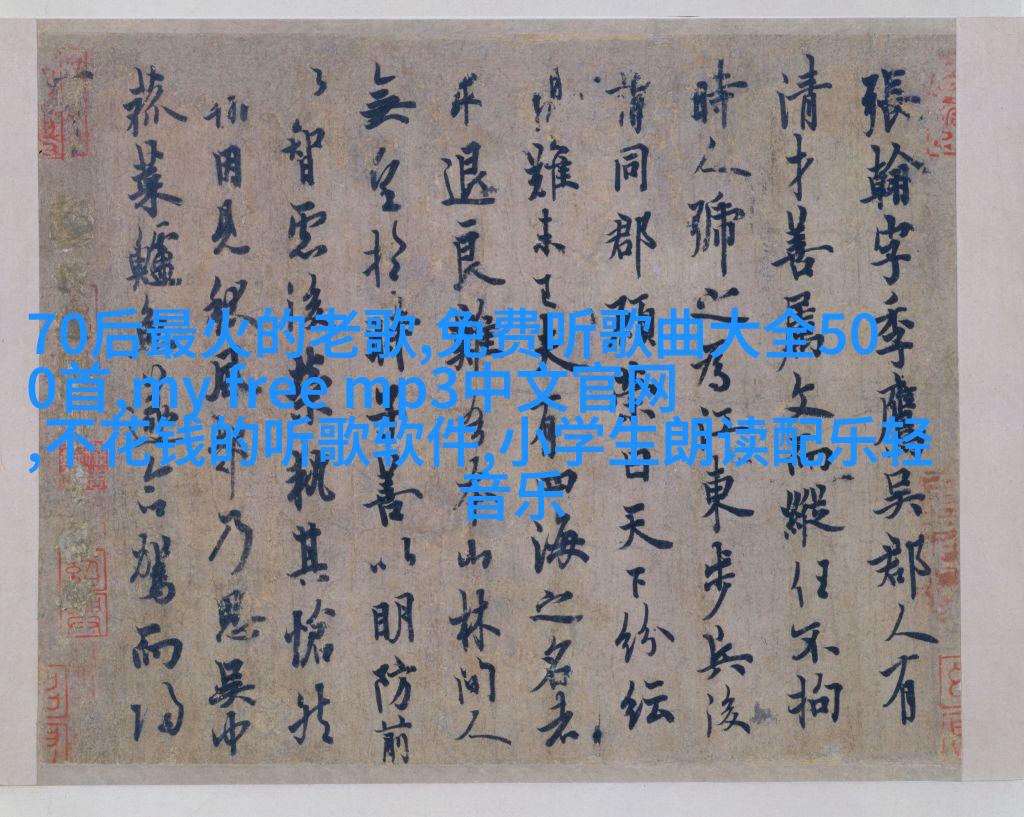 70后最火的老歌,免费听歌曲大全50
0首,my free mp3中文官网
,不花钱的听歌软件,小学生朗读配乐轻
音乐
張翰字季鷹吳郡人有
清才善屬文而縱任不拘
時人號之為江東步兵後
同郡顧榮曰天下紛紜
難未已夫有四海之名者
求退良難吾本山林間人
無望於時子善以明防前
以智慮後榮執其愴然
翰因見秋風起乃思吳中
菰菜鱸魚遂命駕而歸